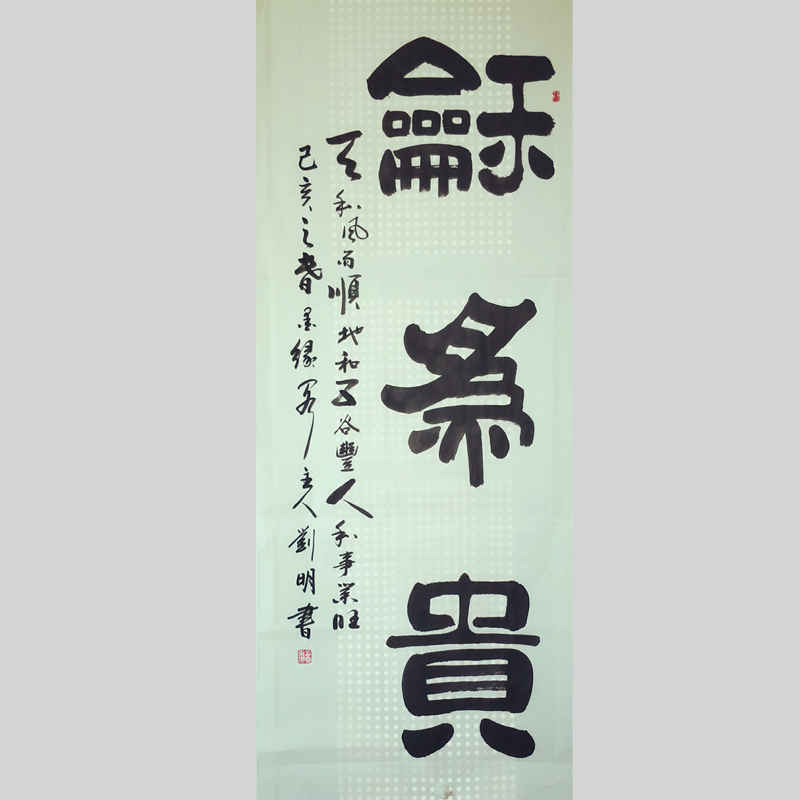 龢為貴
天和風雨順地和五谷豐人和事業旺
己亥之春墨緣閣主人劉明書